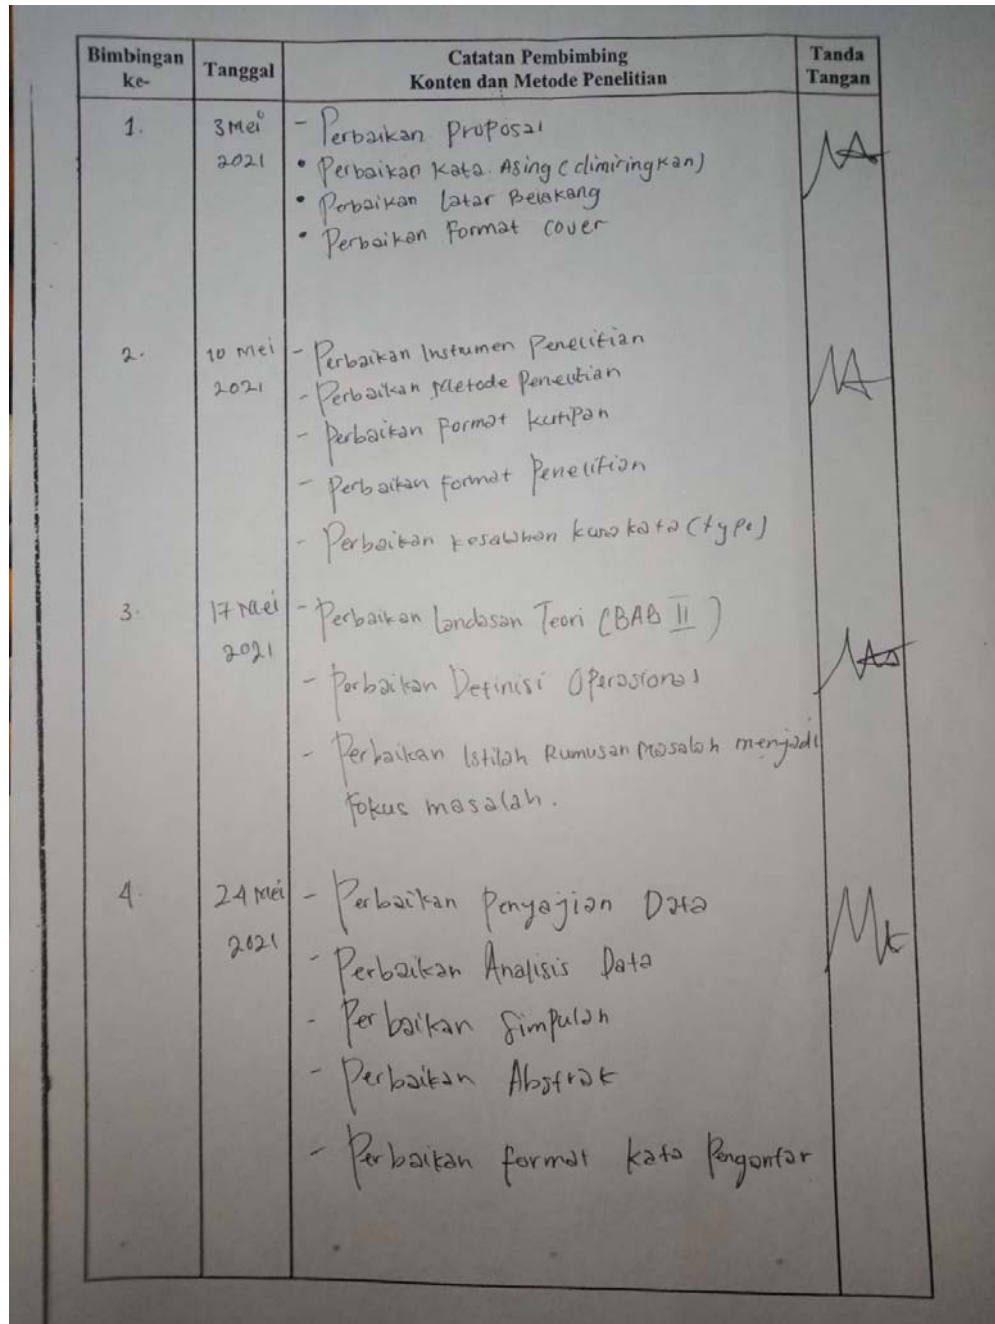 Bimbingan ke-
Tanggal
Catatan Pembimbing
Konten dan Metode Penelitian
Tanda Tangan
1. 3 Mei 2021
- Perbaikan Proposal
• Perbaikan Kata Asing (dimiringkan)
• Perbaikan Latar Belakang
• Perbaikan Format Cover
2. 10 Mei 2021
- Perbaikan Instrumen Penelitian
- Perbaikan Metode Penelitian
- Perbaikan Format Kutipan
- Perbaikan Format Penelitian
- Perbaikan Kesalahan kata (type)
3. 17 Mei 2021
- Perbaikan Landasan Teori (BAB II)
- Perbaikan Definisi Operasional
- Perbaikan Istilah Rumusan Masalah menjadi
Fokus masalah.
4. 24 Mei 2021
- Perbaikan Penyajian Data
- Perbaikan Analisis Data
- Perbaikan Simpulan
- Perbaikan Abstrak
- Perbaikan format kata Pengantar